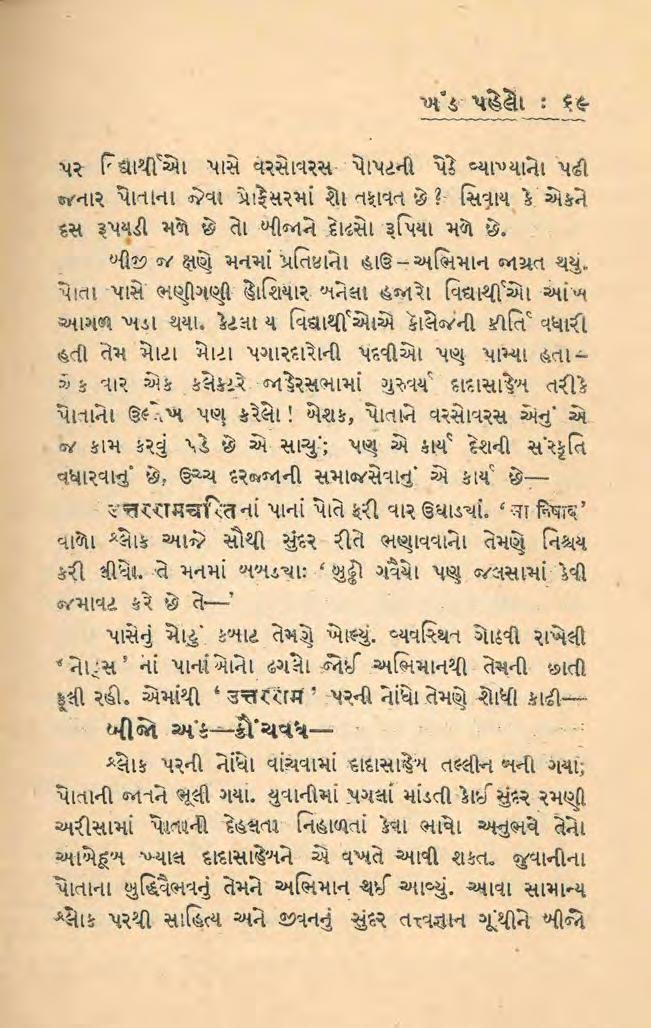 ખંડ પહેલો : ૬૯
પર વિદ્યાર્થીઓ પાસે વરસોવરસ પોપટની પેઠે વ્યાખ્યાનો પઢી
જનાર પોતાના જેવા પ્રોફેસરમાં શો તફાવત છે? સિવાય કે એકને
દસ રૂપયડી મળે છે તો બીજાને દોઢસો રૂપિયા મળે છે.
બીજી જ ક્ષણે મનમાં પ્રતિષ્ઠાનો હાઉ – અભિમાન જાગ્રત થયું.
પોતા પાસે ભણીગણી હોશિયાર બનેલા હજારો વિદ્યાર્થીઓ આંખ
આગળ ખડા થયા. કેટલા ય વિદ્યાર્થીઓએ કોલેજની કીર્તિ વધારી
હતી તેમ મોટા મોટા પગારદારોની પદવીઓ પણ પામ્યા હતા –
એક વાર એક કલેક્ટરે જાહેરસભામાં ગુરુવર્ય દાદાસાહેબ તરીકે
પોતાનો ઉલ્લેખ પણ કરેલો! બેશક, પોતાને વરસોવરસ એનું એ
જ કામ કરવું પડે છે એ સાચું; પણ એ કાર્ય દેશની સંસ્કૃતિ
વધારવાનું છે, ઉચ્ચ દરજ્જાની સમાજસેવાનું એ કાર્ય છે—
उत्तररामचरितનાં પાનાં પોતે ફરી વાર ઉઘાડ્યાં. ‘ मा निषाद’
વાળો શ્લોક આજે સૌથી સુંદર રીતે ભણાવવાનો તેમણે નિશ્ચય
કરી લીધો. તે મનમાં બબડ્યાઃ ‘ બુઢ્ઢો ગવૈયો પણ જલસામાં કેવી
જમાવટ કરે છે તે—’
પાસેનું મોટું કબાટ તેમણે ખોલ્યું. વ્યવસ્થિત ગોઠવી રાખેલી
‘ નોટ્સ ’ નાં પાનાંઓનો ઢગલો જોઈ અભિમાનથી તેમની છાતી
ફૂલી રહી. એમાંથી ‘ उत्तरराम ’ પરની નોંધો તેમણે શોધી કાઢી—
બીજો અંક—ક્રૌંચવધ—
શ્લોક પરની નોંધો વાંચવામાં દાદાસાહેબ તલ્લીન બની ગયા;
પોતાની જાતને ભૂલી ગયા. યુવાનીમાં પગલાં માંડતી કોઈ સુંદર રમણી
અરીસામાં પોતાની દેહલતા નિહાળતાં કેવા ભાવો અનુભવે તેનો
આબેહૂબ ખ્યાલ દાદાસાહેબને એ વખતે આવી શકત. જુવાનીના
પોતાના બુદ્ધિવૈભવનું તેમને અભિમાન થઈ આવ્યું. આવા સામાન્ય
શ્લોક પરથી સાહિત્ય અને જીવનનું સુંદર તત્ત્વજ્ઞાન ગૂંથીને બીજો